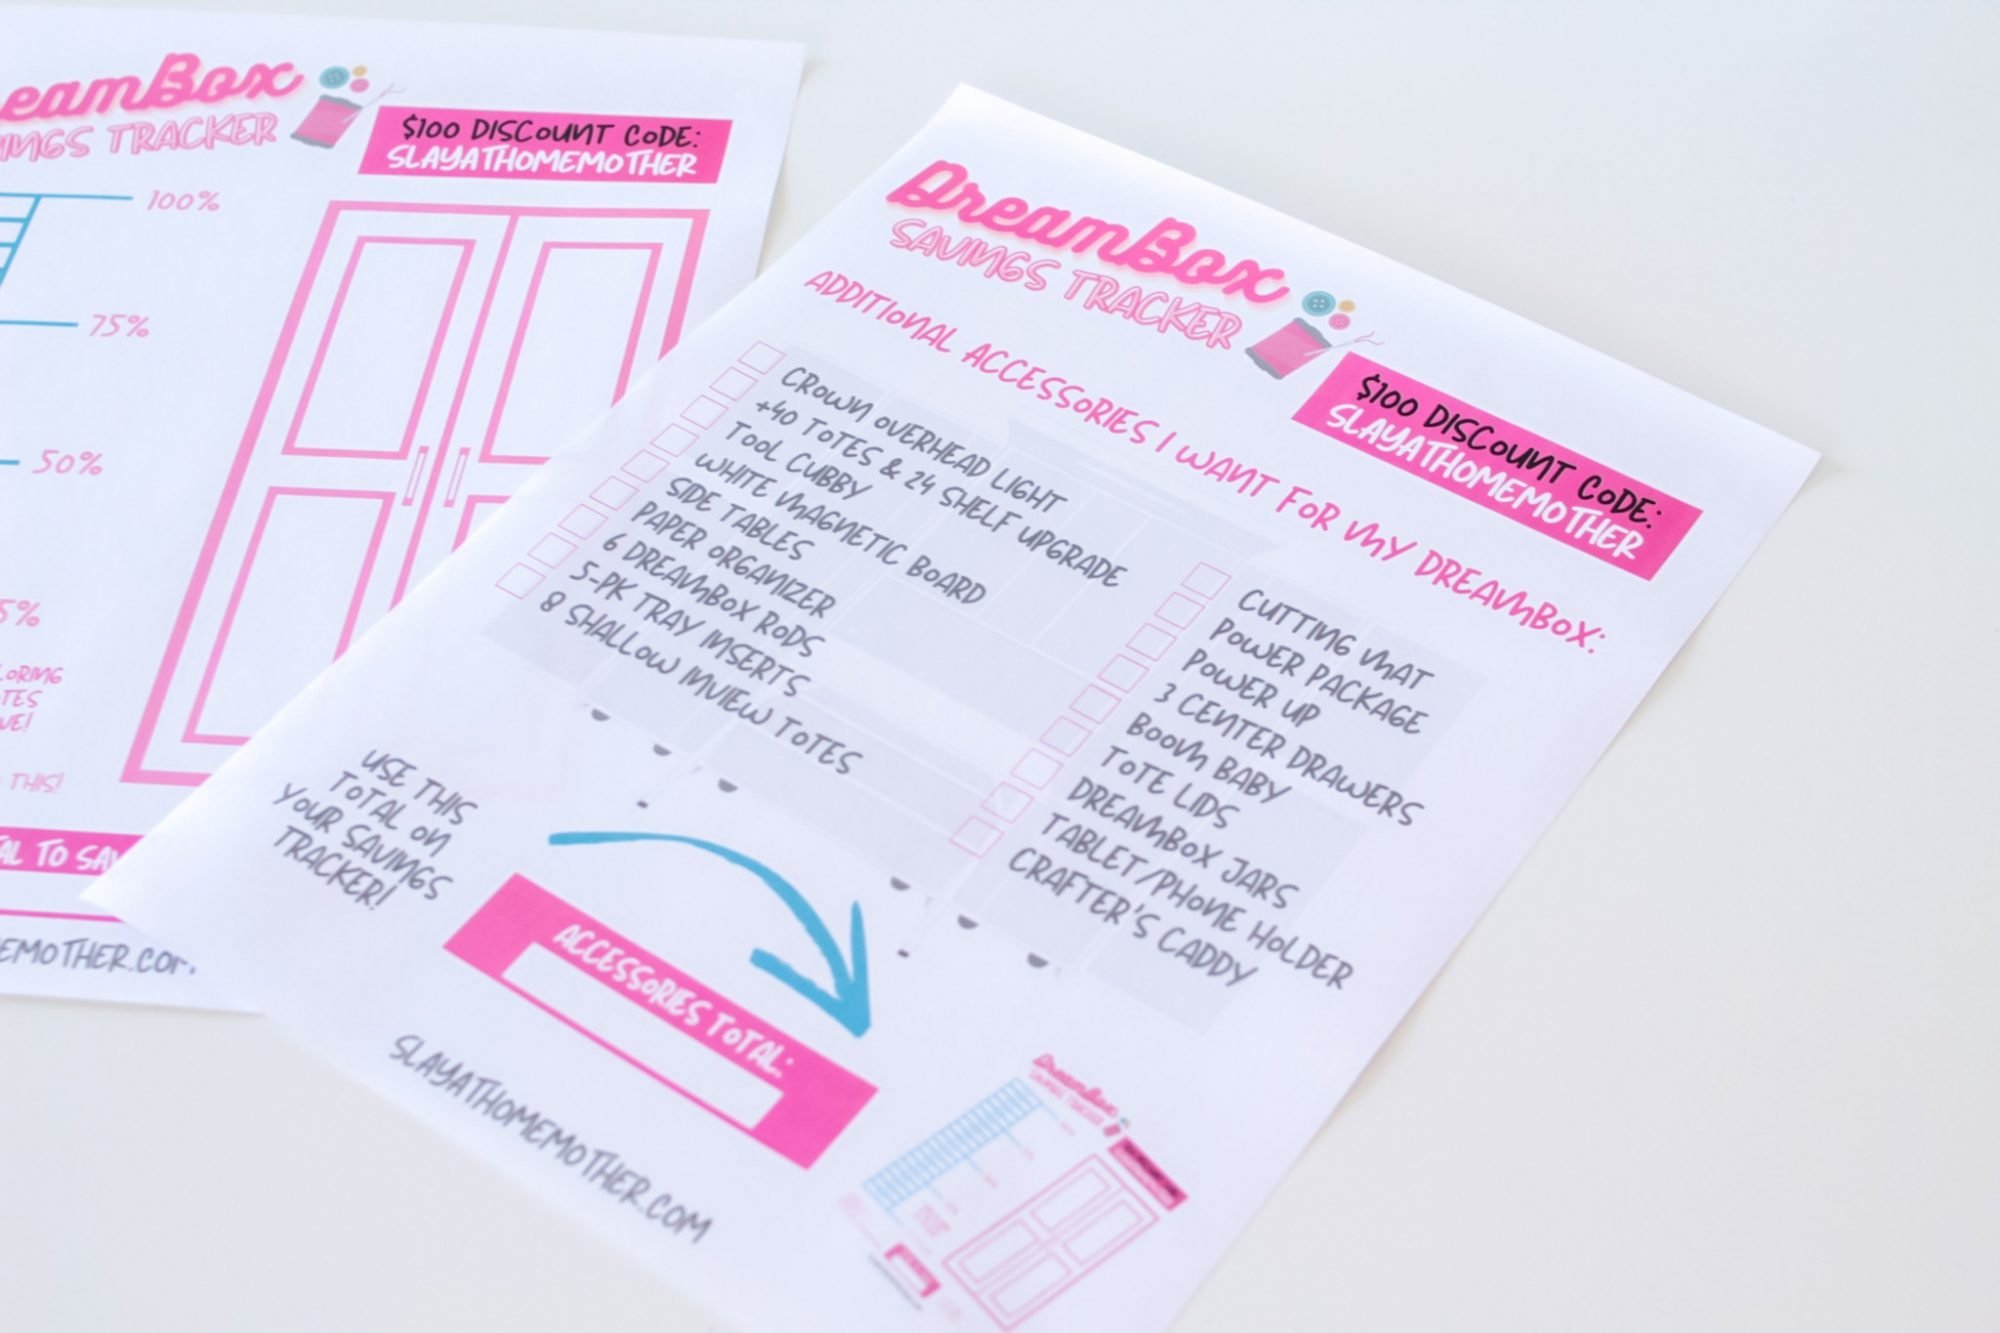 SAVINGS TRACKER
$100 DISCOUNT CODE:
SLAYATHOMEMOTHER
100%
75%
50%
THIS!
DreamBox
SAVINGS TRACKER
$100 DISCOUNT CODE:
SLAYATHOMEMOTHER
ADDITIONAL ACCESSORIES I WANT FOR MY DREAMBOX:
CROWN OVERHEAD LIGHT
+40 TOTES & 24 SHELF UPGRADE
TOOL CUBBY
WHITE MAGNETIC BOARD
SIDE TABLES
PAPER ORGANIZER
6 DREAMBOX RODS
5-PK TRAY INSERTS
8 SHALLOW INVIEW TOTES
CUTTING MAT
POWER PACKAGE
POWER UP
3 CENTER DRAWERS
BOOM BABY
TOTE LIDS
DREAMBOX JARS
TABLET/PHONE HOLDER
CRAFTER'S CADDY
USE THIS
TOTAL ON
YOUR SAVINGS
TRACKER!
ACCESSORIES TOTAL:
SLAYATHOMEMOTHER.COM
DreamBox